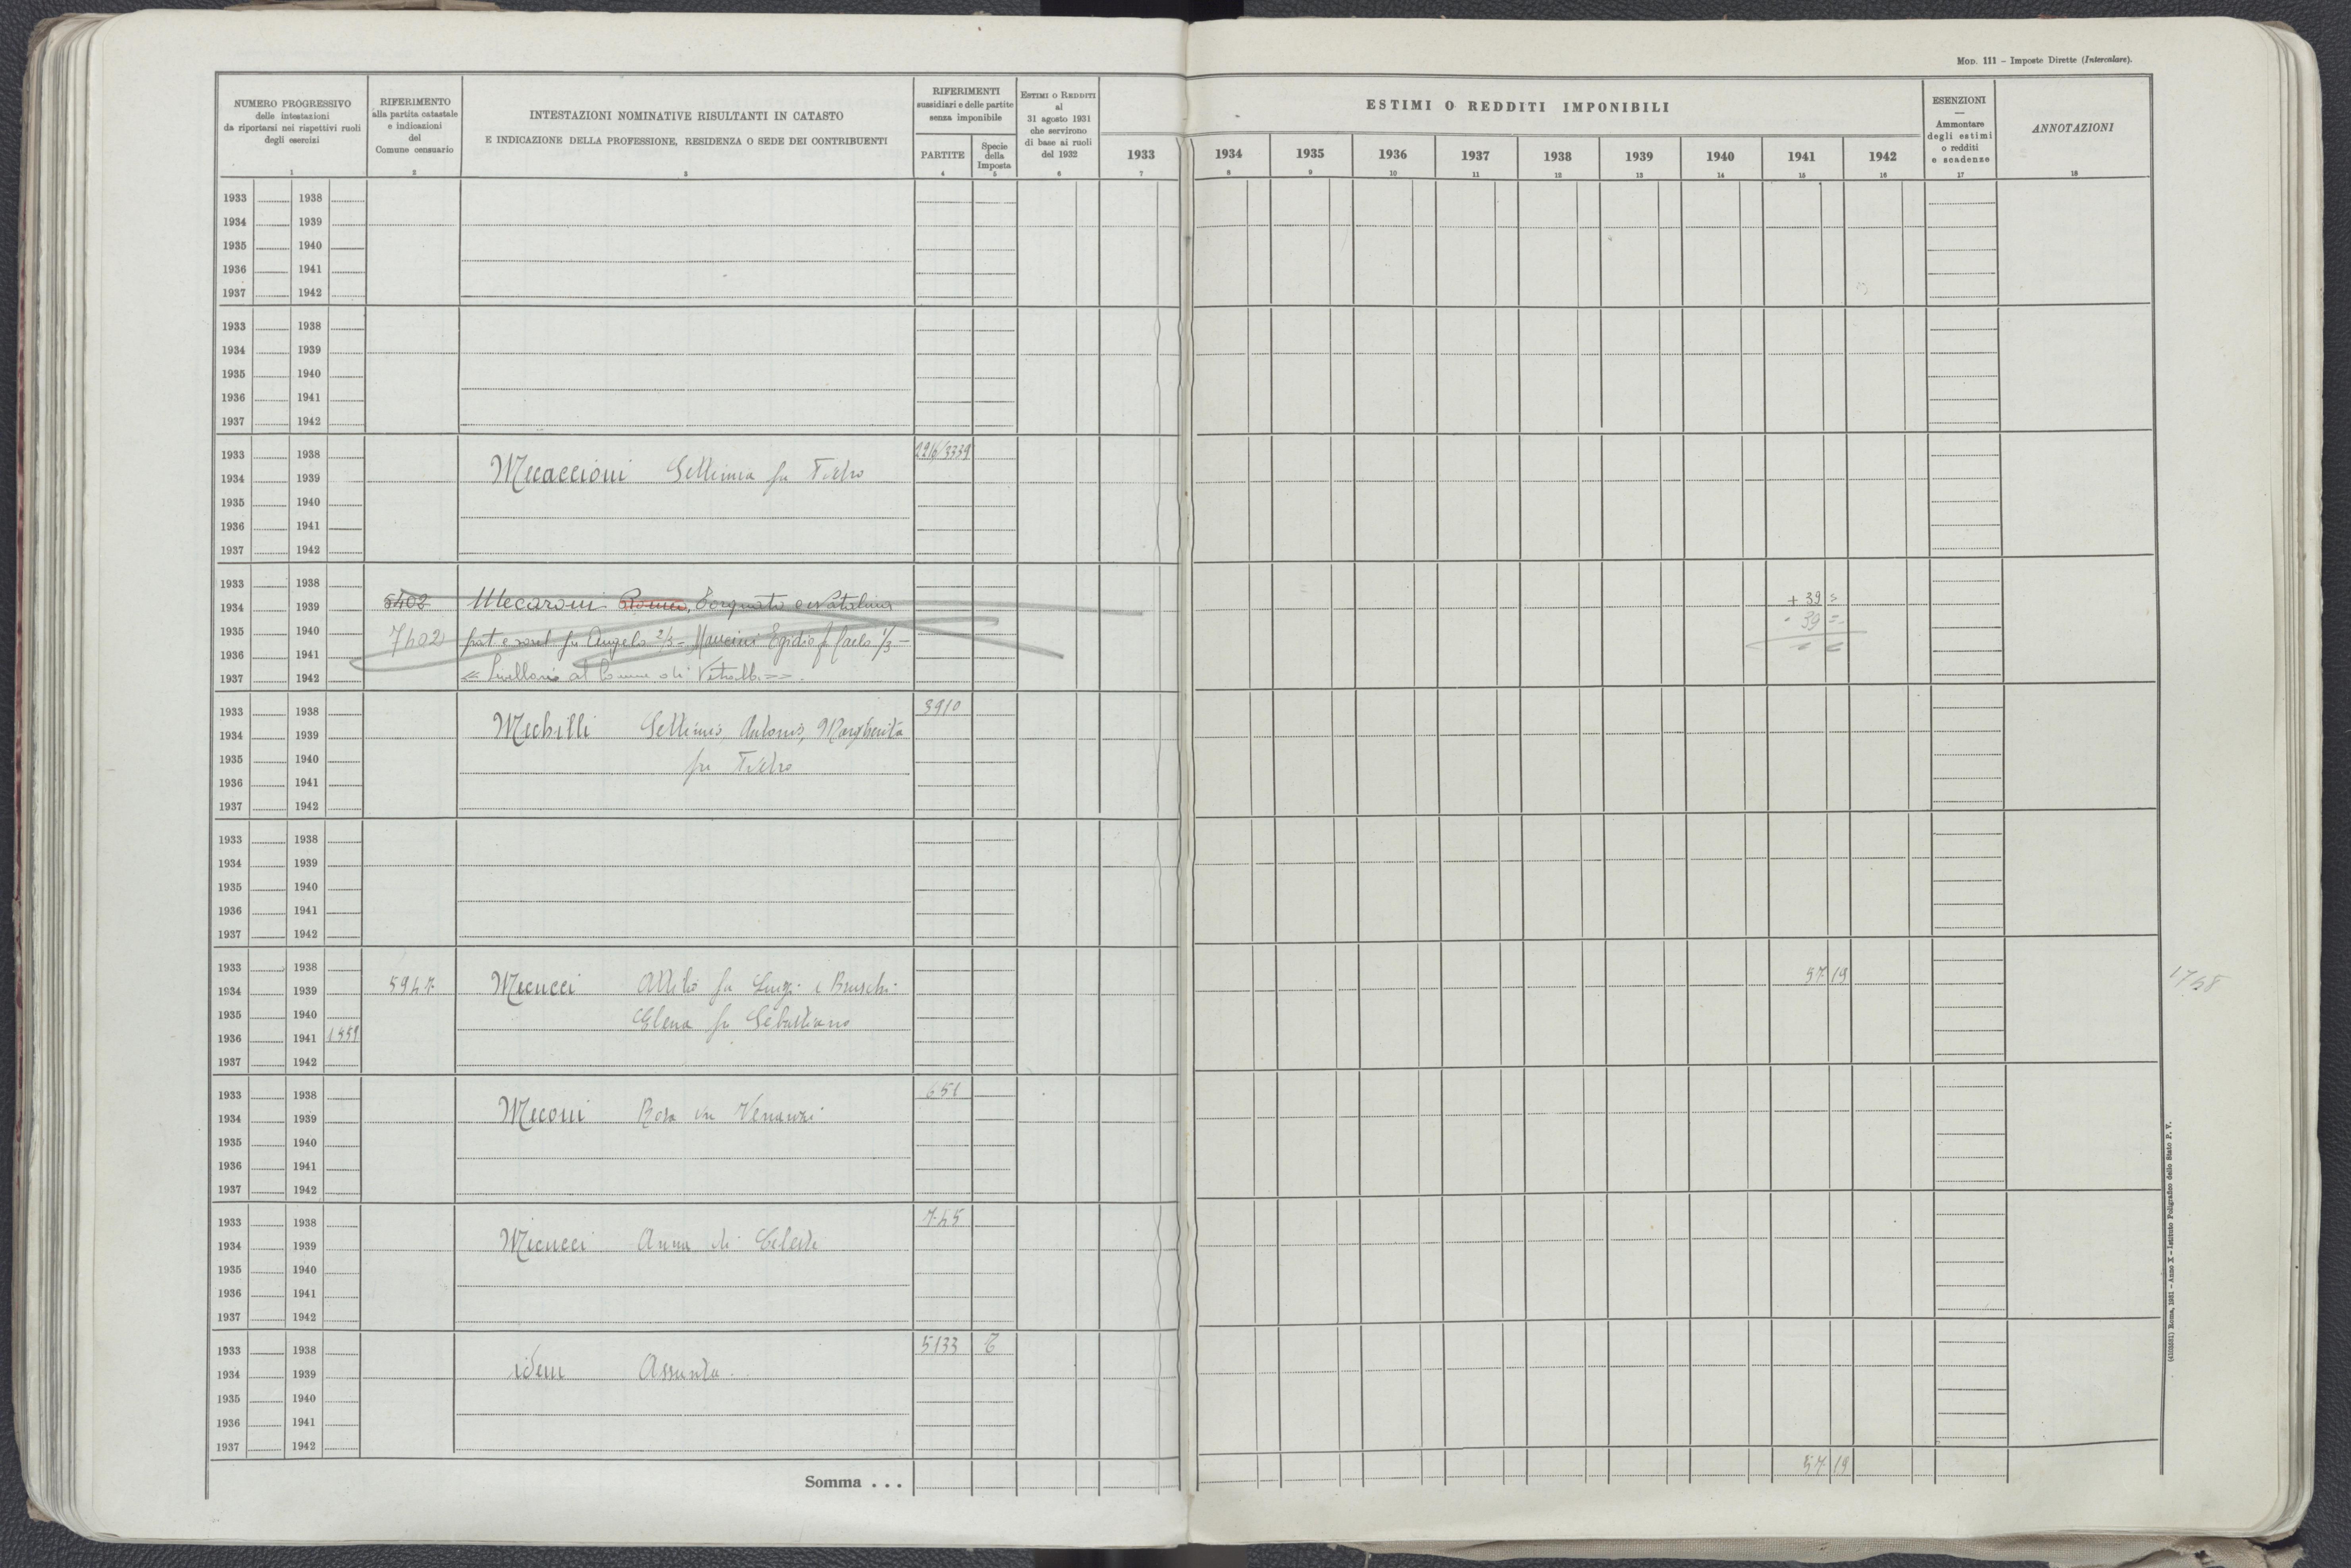 Mod. 111 – Imposte Dirette (Intercalare).
NUMERO PROGRESSIVO
delle intestazioni
da riportarsi nei rispettivi ruoli
degli esercizi
1
RIFERIMENTO
alla partita catastale
e indicazioni
del
Comune censuario
2
INTESTAZIONI NOMINATIVE RISULTANTI IN CATASTO
E INDICAZIONE DELLA PROFESSIONE, RESIDENZA O SEDE DEI CONTRIBUENTI
3
RIFERIMENTI
sussidiari e delle partite
senza imponibile
PARTITE
4
Specie
della
Imposta
5
Estimi o Redditi
al
31 agosto 1931
che servirono
di base ai ruoli
del 1932
6
ESTIMI O REDDITI IMPONIBILI
1933 1934 1935 1936 1937 1938 1939 1940 1941 1942
7 8 9 10 11 12 13 14 15 16
ESENZIONI
—
Ammontare
degli estimi
o redditi
e scadenze
17
ANNOTAZIONI
18
1933 1938
1934 1939
1935 1940
1936 1941
1937 1942
1933 1938
1934 1939
1935 1940
1936 1941
1937 1942
1933 1938 2216/3339
1934 1939 Mecaccioni Settimia fu Pietro
1935 1940
1936 1941
1937 1942
1933 1938
1934 1939 5402 Mecaroni Torquato e Natalina + 39 =
1935 1940 7402 fu Angelo 2/3 = Mancini Egidio fu Carlo 1/3 – - 39 =
1936 1941
1937 1942 = Livellario al Comune di Vetralla =
1933 1938 3910
1934 1939 Mechilli Settimio, Antonio, Margherita
1935 1940 fu Pietro
1936 1941
1937 1942
1933 1938
1934 1939
1935 1940
1936 1941
1937 1942
1933 1938 57 19
1934 1939 5947 Mecucci Attilio fu Luigi e Bruschi
1935 1940 Elena fu Sebastiano
1936 1941 1359
1937 1942
1933 1938 651
1934 1939 Meconi Rosa in Venanzi
1935 1940
1936 1941
1937 1942
1933 1938 745
1934 1939 Mecucci Anna di Celeste
1935 1940
1936 1941
1937 1942
1933 1938 5133
1934 1939 idem Assunta.
1935 1940
1936 1941
1937 1942
Somma . . . 57 19
(4103281) Roma, 1931 – Anno X – Istituto Poligrafico dello Stato P. V.